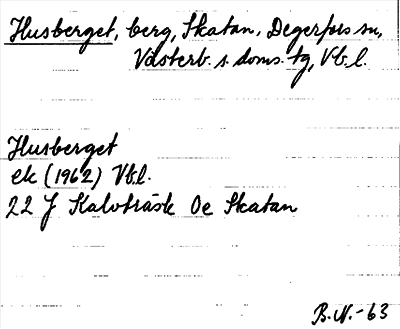 Husberget, berg, Skatan, Degerfors sn,
Västerb. s. doms. tg, Vb. l.
Husberget
ek (1962) Vb. l.
22 J Kalvträsk 0e Skatan
B.N.-63